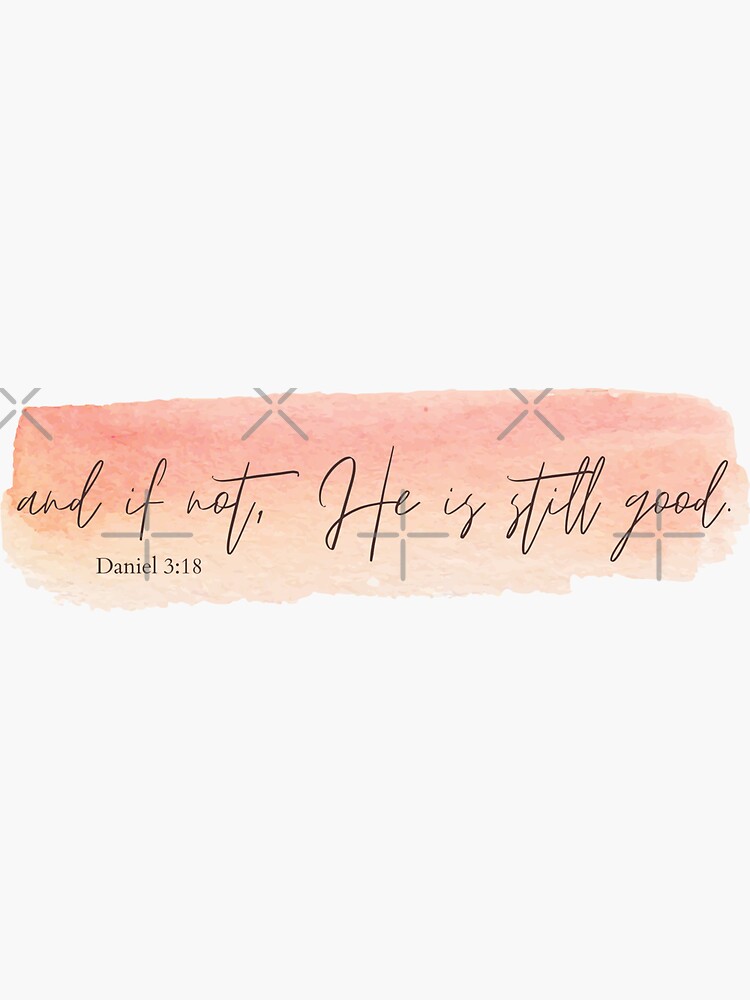 and if not, He is still good.
Daniel 3:18